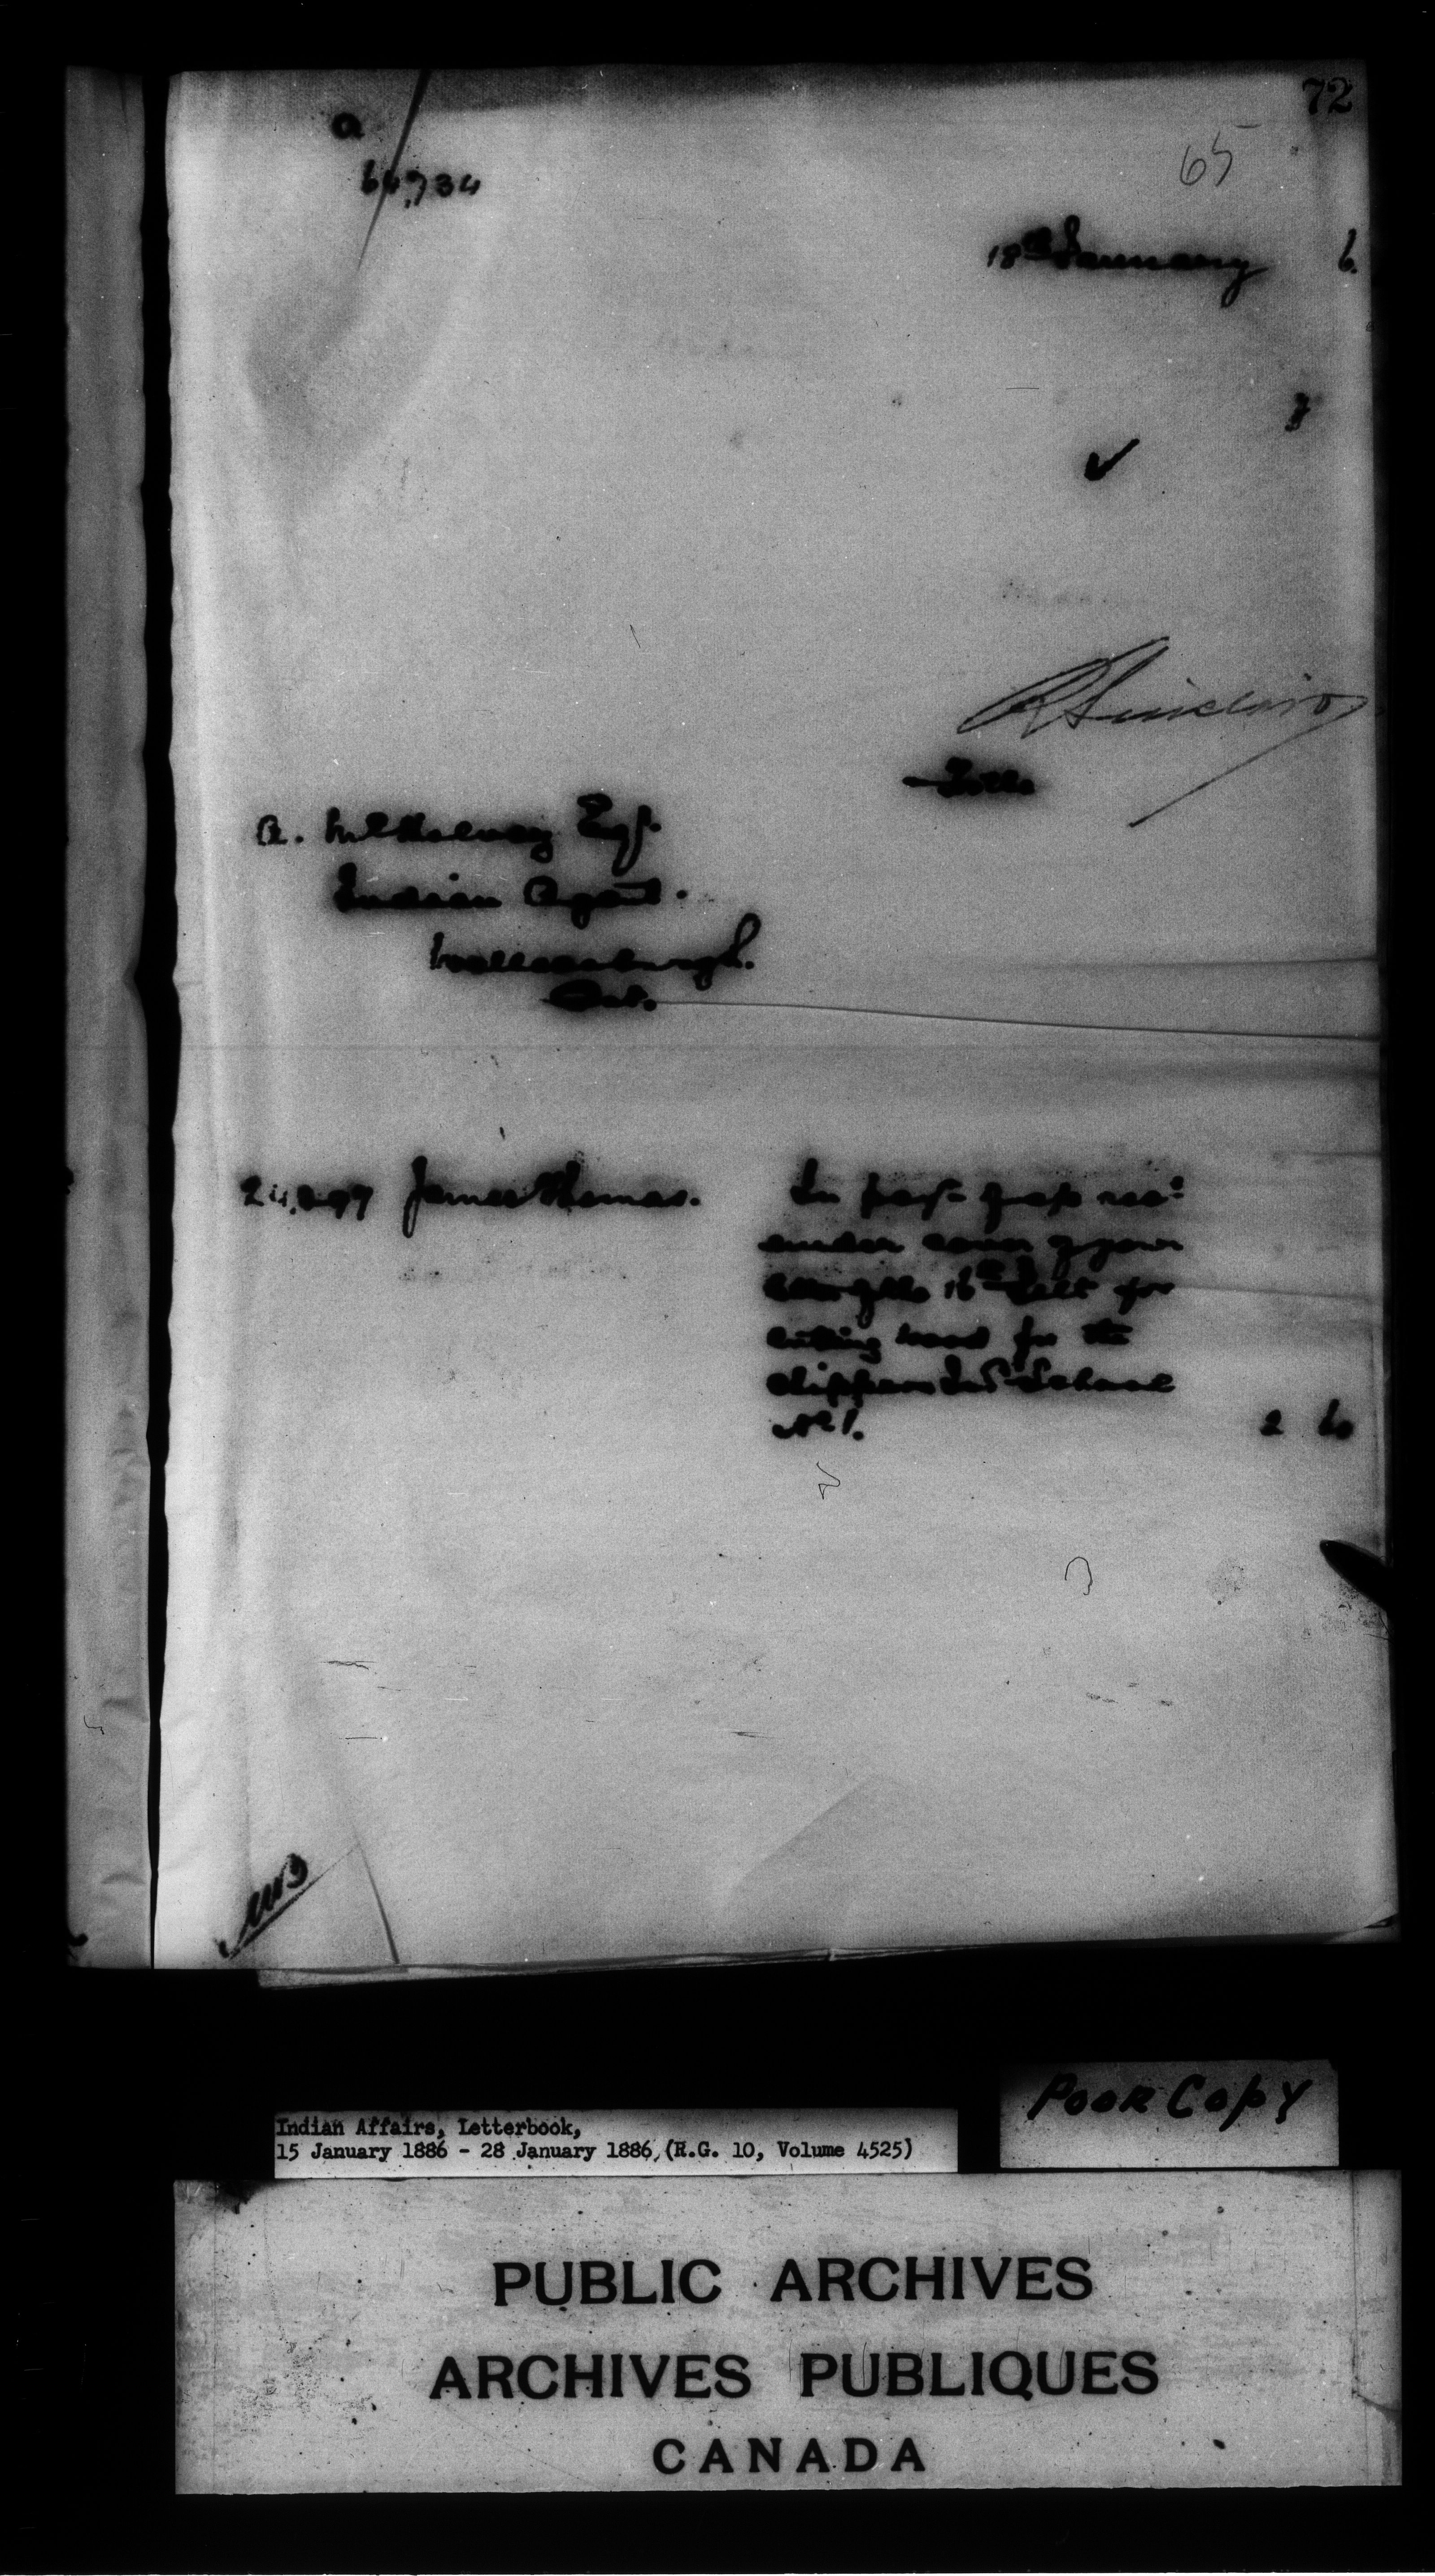 72
65
a
18th January 6.
R Sinclair
A. McKelvey Esq.
Indian Agent.
Wallaceburgh.
Ont.
James Thomas. In payt of acct rec'd
under cover of your
letter of the 16th for
cutting wood for the
Ind School
No 1. 2 60
Indian Affairs, Letterbook,
15 January 1886 - 28 January 1886, (R.G. 10, Volume 4525)
Poor Copy
PUBLIC ARCHIVES
ARCHIVES PUBLIQUES
CANADA